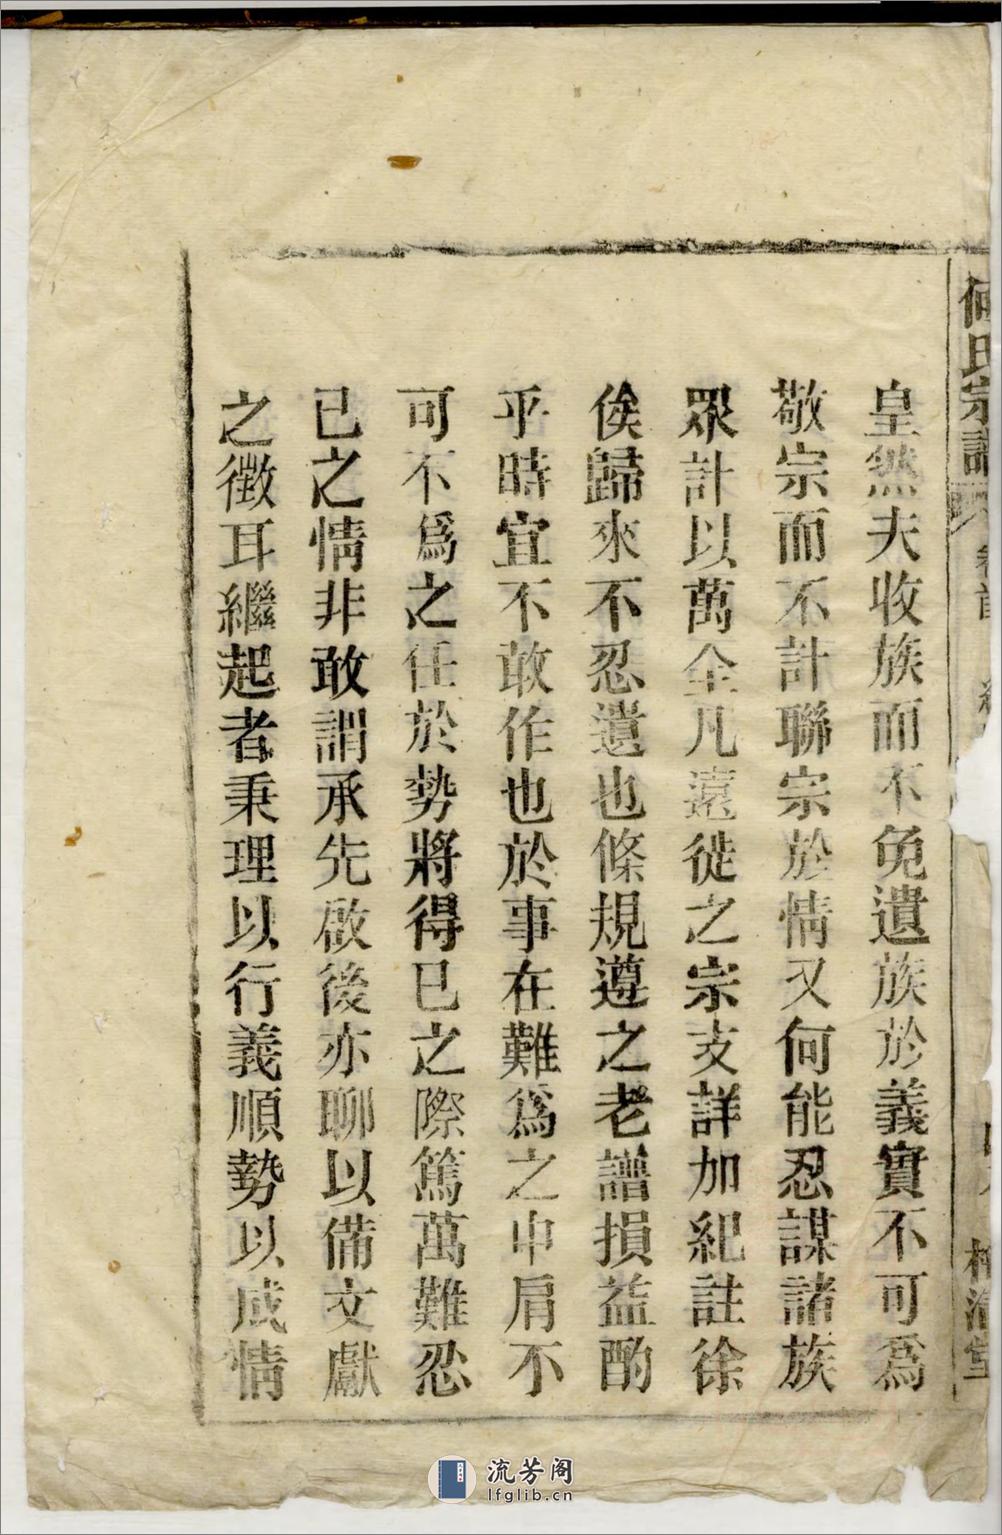 何氏宗譜 卷首
皇然夫收族而不免遺族於義實不可爲
敬宗而不計聯宗於情又何能忍謀諸族
眾計以萬全凡遠徙之宗支詳加紀註徐
俟歸來不忍遺也條規遵之老譜損益酌
乎時宜不敢作也於事在難爲之中肩不
可不爲之任於勢將得已之際篤萬難忍
已之情非敢謂承先啟後亦聊以備文獻
之徵耳繼起者秉理以行義順勢以成情
流芳阁
lfglib.cn